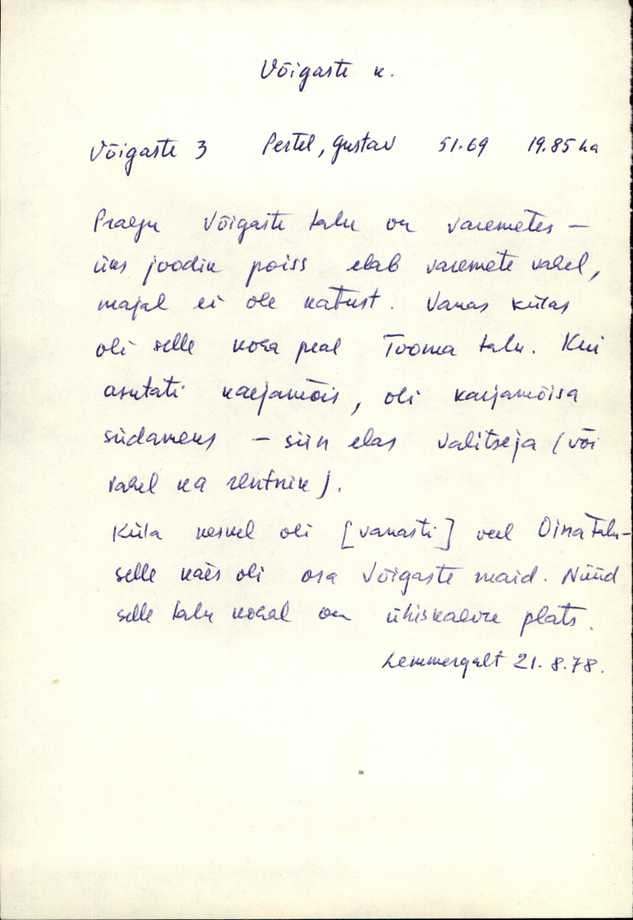 Võigaste k.
Võigaste 3 Pertel, Gustav 51.69 19.85 ha
Praegu Võigaste talu on varemetes –
üks joodik poiss elab varemete vahel,
majal ei ole katust. Vanas külas
oli selle koha peal Tooma talu. Kui
asutati karjamõis, oli karjamõisa
südameks – siin elas valitseja (või
vahel ka rentnik).
Küla keskel oli [vanasti] veel Oina talu –
selle käes oli osa Võigaste maid. Nüüd
selle talu kohal on ühiskarja plats.
Lemmergalt 21.8.78.